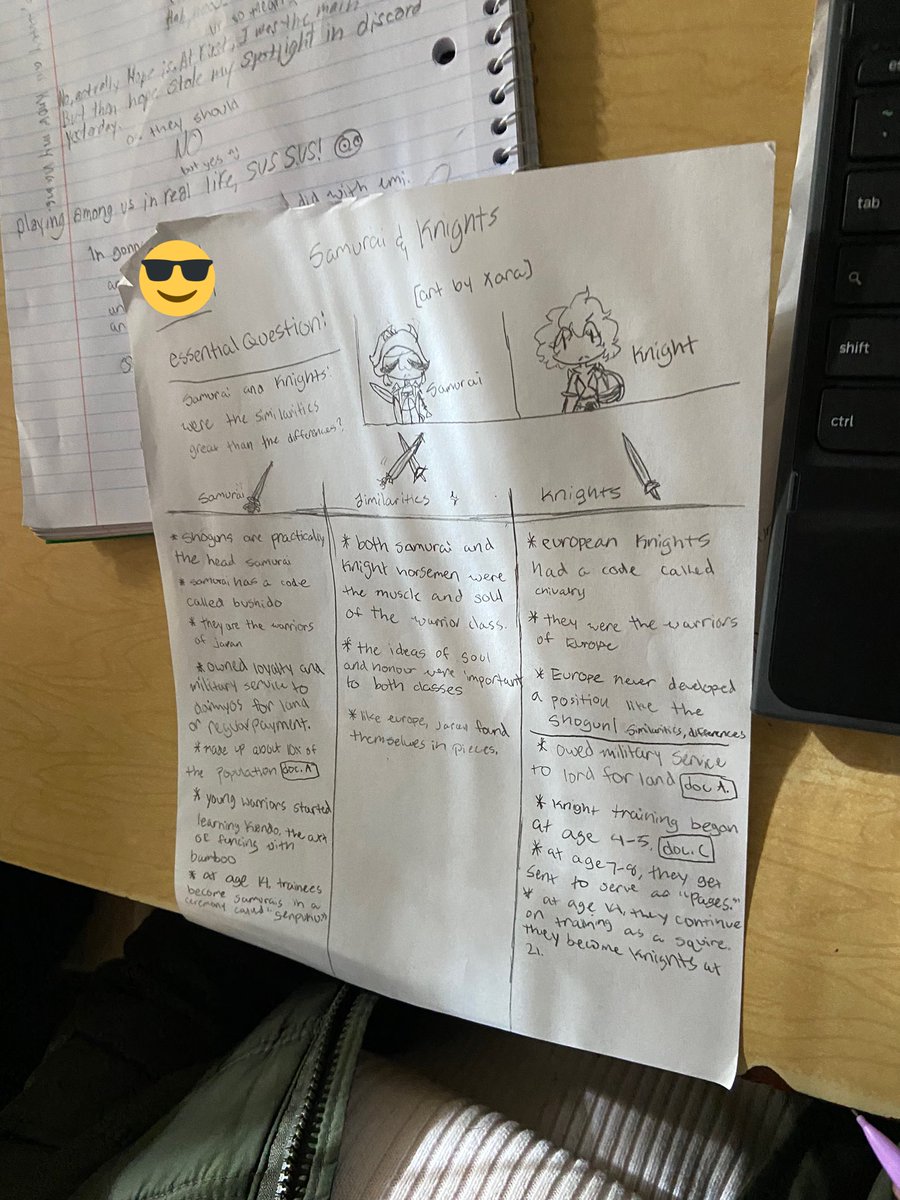 No, actually Hope is. At First, I was the main
But then hope stole my spotlight in discord
yesterday.
or they should
NO
but yes
playing among us in real life, SUS SUS!
I did with emi.
Im gonna
Samurai & Knights
[art by Xara]
essential Question:
Samurai and Knights:
were the similarities
great than the differences?
Samurai
Knight
Samurai
Similarities
Knights
* Shoguns are practically
the head samurai
* samurai has a code
called bushido
* they are the warriors
of Japan
* owned loyalty and
military service to
daimyos for land
or regular payment.
* made up about 10% of
the population doc.A
* young warriors started
learning Kendo, the art
of fencing with
bamboo
* at age 14, trainees
become samurais in a
ceremony called "genpuku"
* both samurai and
Knight horsemen were
the muscle and sold
of the warrior class.
* the ideas of soul
and honour were important
to both classes
* like europe, Japan found
themselves in pieces.
* european Knights
had a code called
chivalry
* they were the warriors
of Europe
* Europe never developed
a position like the
Shogun! similarities, differences
* owed military service
to lord for land doc A.
* Knight training began
at age 4-5. doc. C
* at age 7-8, they get
sent to serve as "pages."
* at age 14, they continue
on training as a squire.
they become Knights at
21.
tab
shift
ctrl